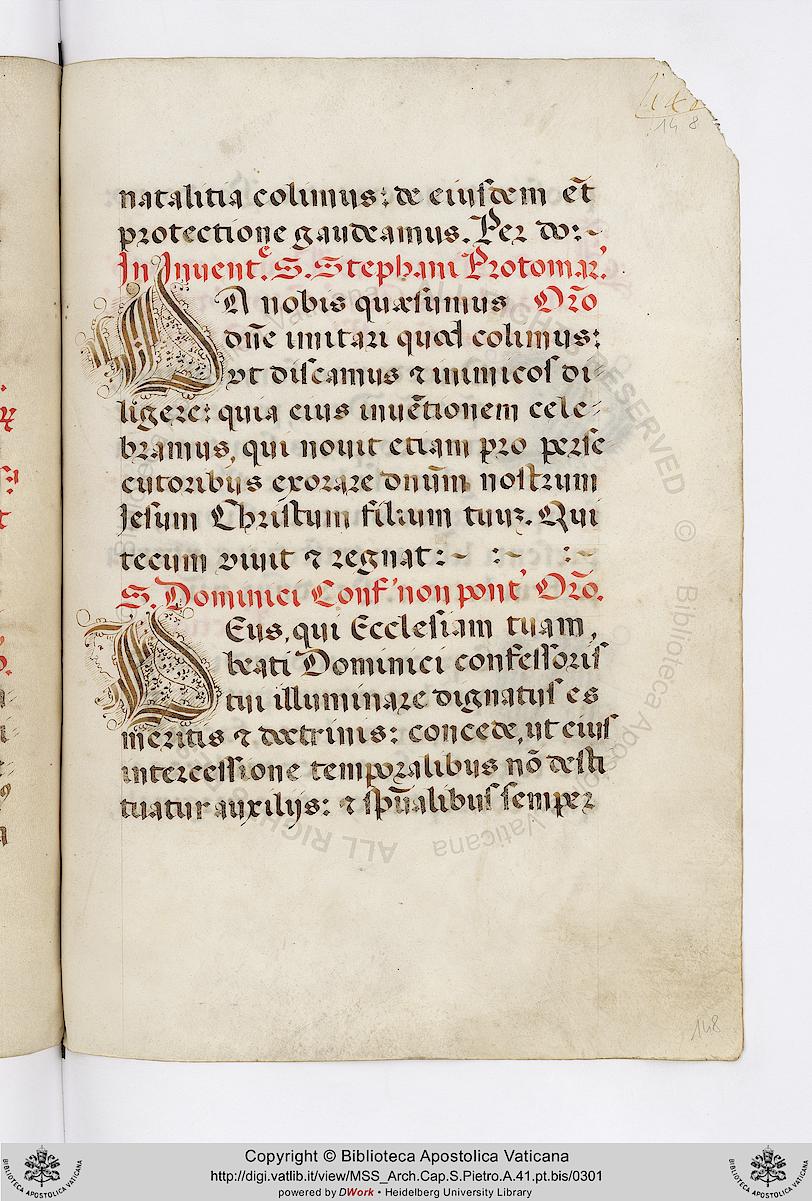 148
natalitia colimus: de eiusdem et̃
protectione gaudeamus. Per do:~
In Inuent.ᵉ S. Stephani Protomar.'
DA nobis quæsumus Orõ
dñe imitari quod colimus:
vt discamus ⁊ inimicos di
ligere: quia eius inuẽtionem cele-
bramus, qui nouit etiam pro perse
cutoribus exorare dnũm nostrum
Iesum Christum filium tuuʒ. Qui
tecum viuit ⁊ regnat:~ :~ :~
S. Dominici Conf' non pont' Orõ.
DEus, qui Ecclesiam tuam,
beati Dominici confessoris
tui illuminare dignatus es
meritis ⁊ doctrinis: concede, ut eius
intercessione temporalibus nõ desti
tuatur auxilijs: ⁊ spũalibus semper
148
ALL RIGHTS RESERVED © Biblioteca Apostolica Vaticana
Copyright © Biblioteca Apostolica Vaticana
http://digi.vatlib.it/view/MSS_Arch.Cap.S.Pietro.A.41.pt.bis/0301
powered by DWork • Heidelberg University Library
BIBLIOTECA APOSTOLICA VATICANA
BIBLIOTECA APOSTOLICA VATICANA